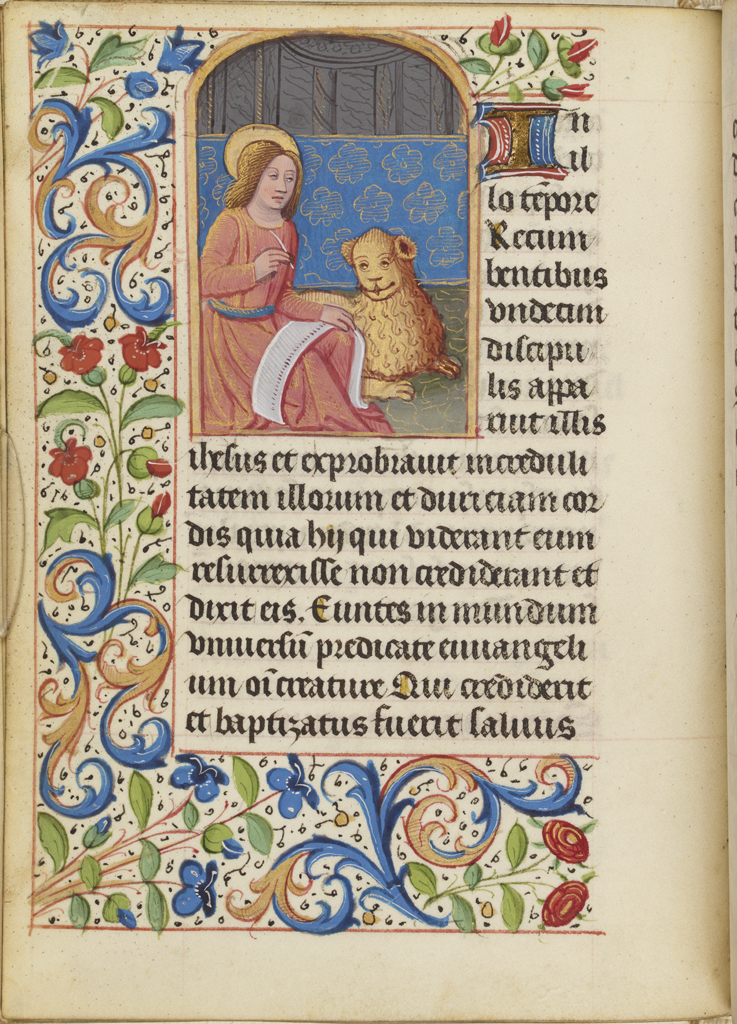 In
il
lo tēpore
Recum
bentibus
vndecim
discipu
lis appa
ruit illis
ihesus et exprobrauit increduli
tatem illorum et duriciam cor
dis quia hij qui viderant eum
resurrexisse non crediderant et
dixit eis. Euntes in mundum
vniuersū predicate euuangeli
um oī creature Qui crediderit
et baptizatus fuerit saluus